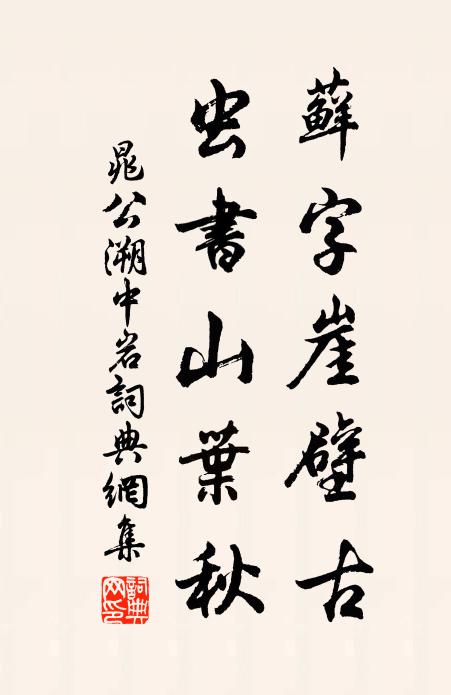 蘚字崖壁古
虫書山葉秋
晁公溯中岩詞典網集
詞典網印